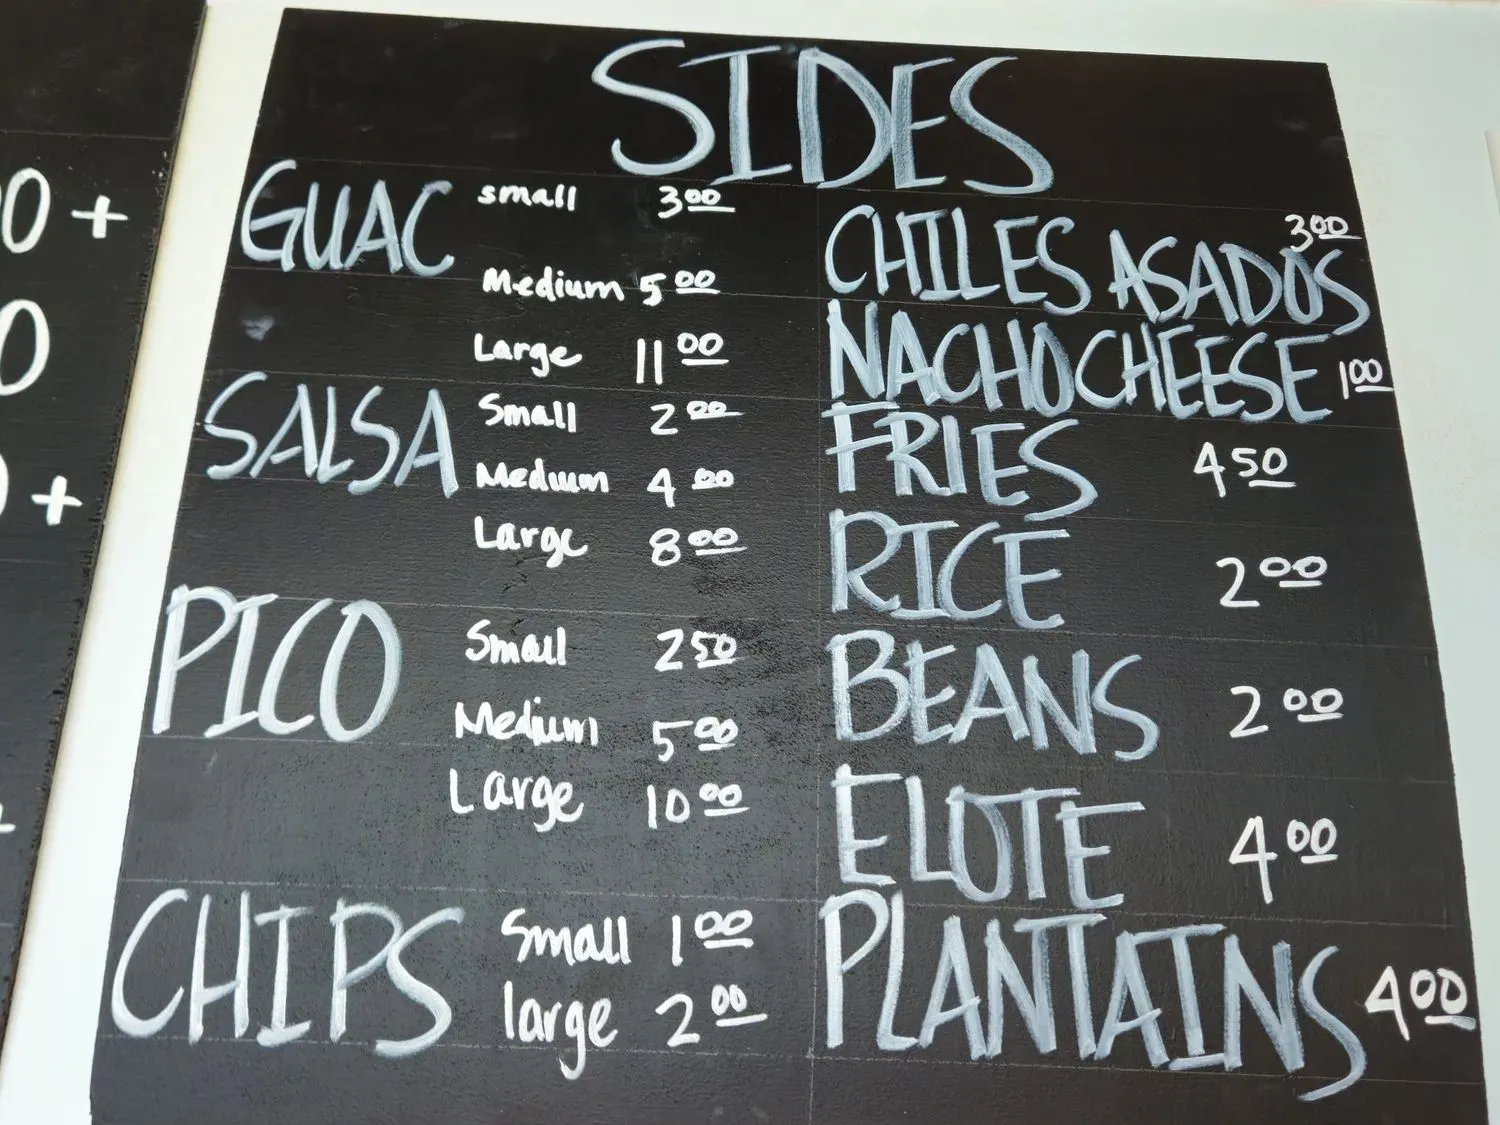 SIDES
GUAC small 3.00
Medium 5.00
Large 11.00
SALSA Small 2.00
Medium 4.00
Large 8.00
PICO Small 2.50
Medium 5.00
Large 10.00
CHIPS Small 1.00
large 2.00
CHILES ASADOS 3.00
NACHO CHEESE 1.00
FRIES 4.50
RICE 2.00
BEANS 2.00
ELOTE 4.00
PLANTAINS 4.00
0 +
0
+